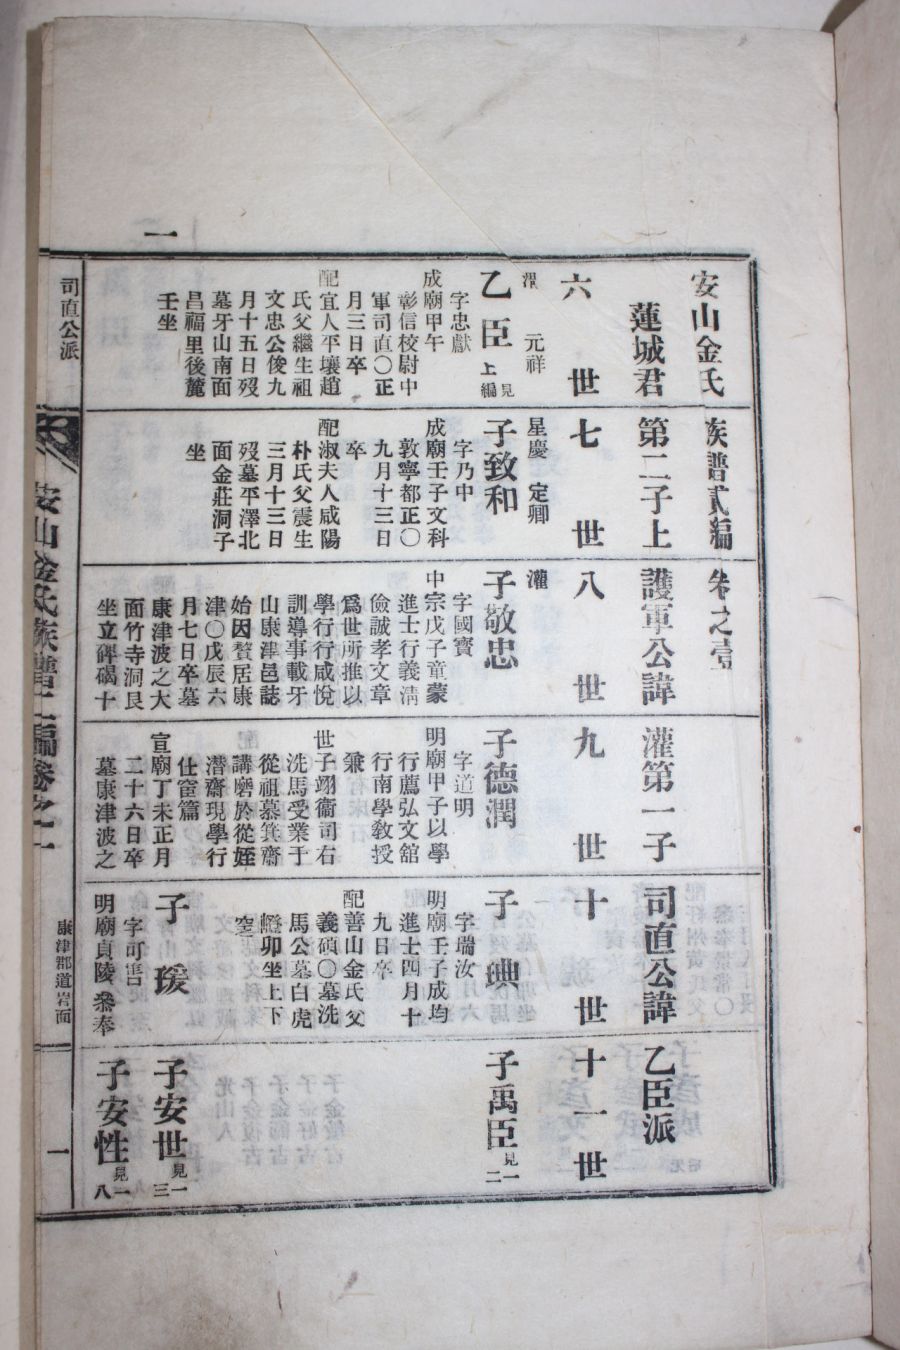 安山金氏族譜貳編 卷之壹
蓮城君第二子上護軍公諱灌第一子司直公諱乙臣派
六世
七世
八世
九世
十世
十一世
元祥
乙臣 見上編
字忠獻
成廟甲午
彰信校尉中
軍司直〇正
月三日卒
配宜人平壤趙
氏父繼生祖
文忠公俊九
月十五日歿
墓牙山南面
昌福里後麓
壬坐
星慶 定卿
子致和
字乃中
成廟壬子文科
敦寧都正〇
九月十三日
卒
配淑夫人咸陽
朴氏父震生
三月十三日
歿墓平澤北
面金莊洞子
坐
灌
子敬忠
字國寶
中宗戊子童蒙
進士行義淸
儉誠孝文章
爲世所推以
學行行咸悅
訓導事載牙
山康津邑誌
始因贅居康
津〇戊辰六
月七日卒墓
康津波之大
面竹寺洞艮
坐立碑碣十
子德潤
字道明
明廟甲子以學
行薦弘文舘
行南學敎授
兼
世子翊衞司右
洗馬受業于
從祖慕箕齋
講磨於從姪
潛齋現學行
仕宦篇
宣廟丁未正月
二十六日卒
墓康津波之
子㻽
字瑞汝
明廟壬子成均
進士四月十
九日卒
配善山金氏父
義碩〇墓洗
馬公墓白虎
嶝卯坐上下
窆
子瑗
字可
明廟貞陵叅奉
子禹臣 見一二
子安世 見一三
子安性 見一八
司直公派
安山金氏族譜二編卷之一
康津郡道岩面
一
一